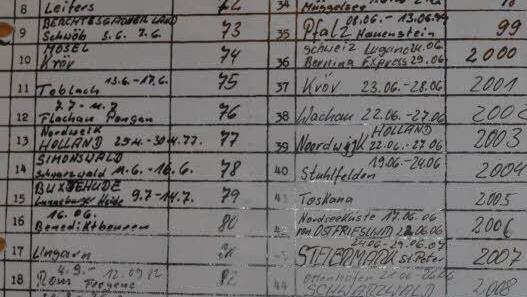 8 Leifers 72
9 BERCHTESGADNER LAND
Schwöb 3.6. 7.6. 73
10 MOSEL
Kröv 74
11 Toblach 13.6.-17.6. 75
12 7.7-11.7
Flachau Pongau 76
13 Nordweik
HOLLAND 29.4.-30.4.77. 77
14 SIMONSWALD
Schwarzwald 11.6.-16.6. 78
15 BUXTEHUDE
Lüneburger Heide 9.7-14.7. 79
16 16.06.
Benediktbeuren 80
17 Ungarn
18 4.9.- 12.09.82
Rom 82
34
Müggelsee
35 08.06.- 13.06.99
Pfalz Hauenstein 99
36 Schweiz Lugano
Bernina Express 29.06. 2000
37 Kröv 23.06.-28.06 2001
38 Wachau 22.06.-27.06 2002
39 HOLLAND
Noordwijk 22.06.-27.06 2003
40 19.06-24.06
Stuhlfelden 2004
Toskana 2005
Nordseeküste 17.06.06
von OSTFRIESLAND 06.06 2006
24.06-29.06.07
STEIERMARK St.Peter 2007
44 Ottenhöfen
SCHWARZWALD 2008